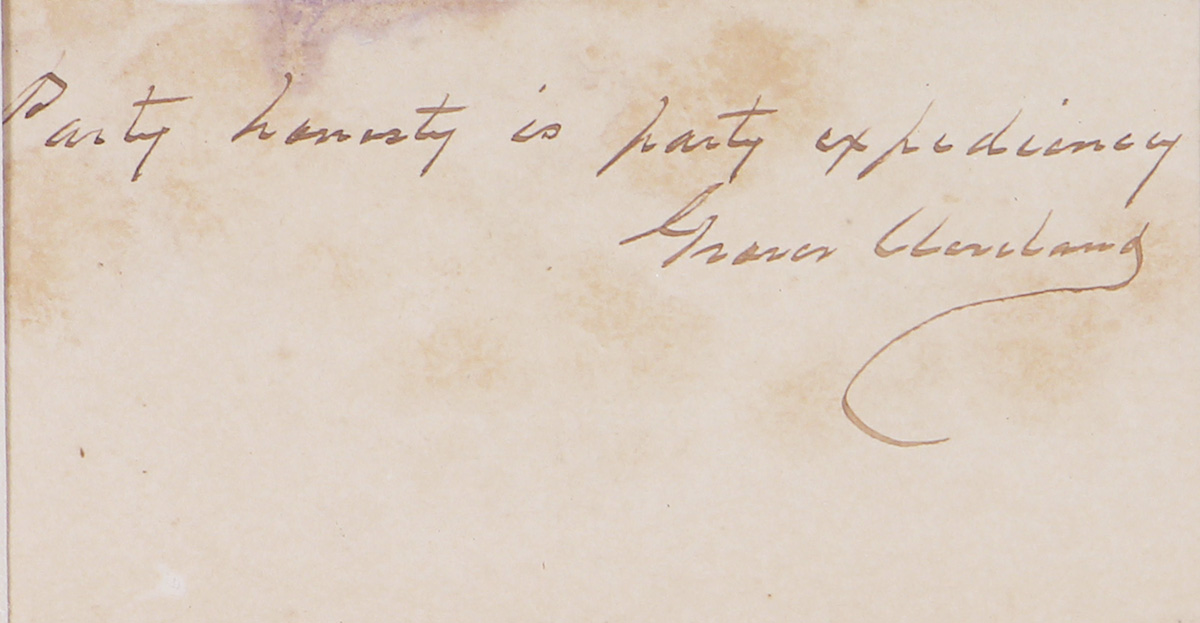 Party honesty is party expediency
Grover Cleveland